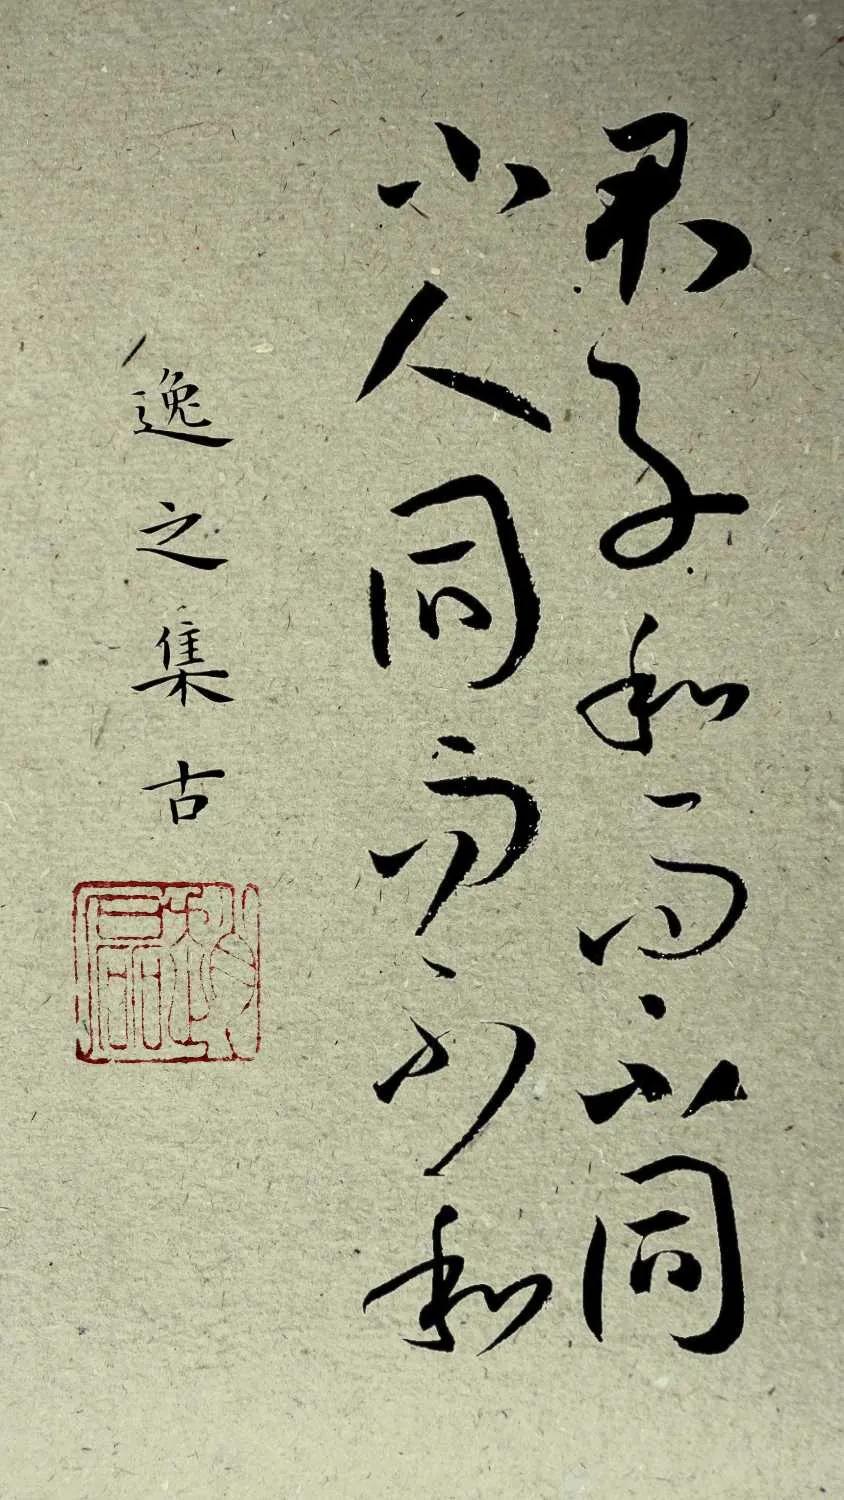 君子和而不同
小人同而不和
逸之集古